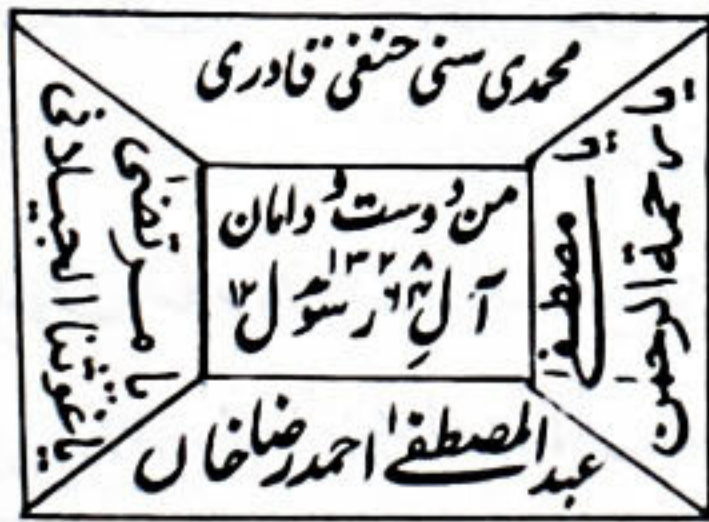 محمدی سنی حنفی قادری
یا رحمة الرحمٰن
یا مصطفےٰ
من و دست و دامان
آلِ رسول
یا مرتضیٰ
یا غوثنا الجیلانی
عبد المصطفےٰ احمد رضا خاں